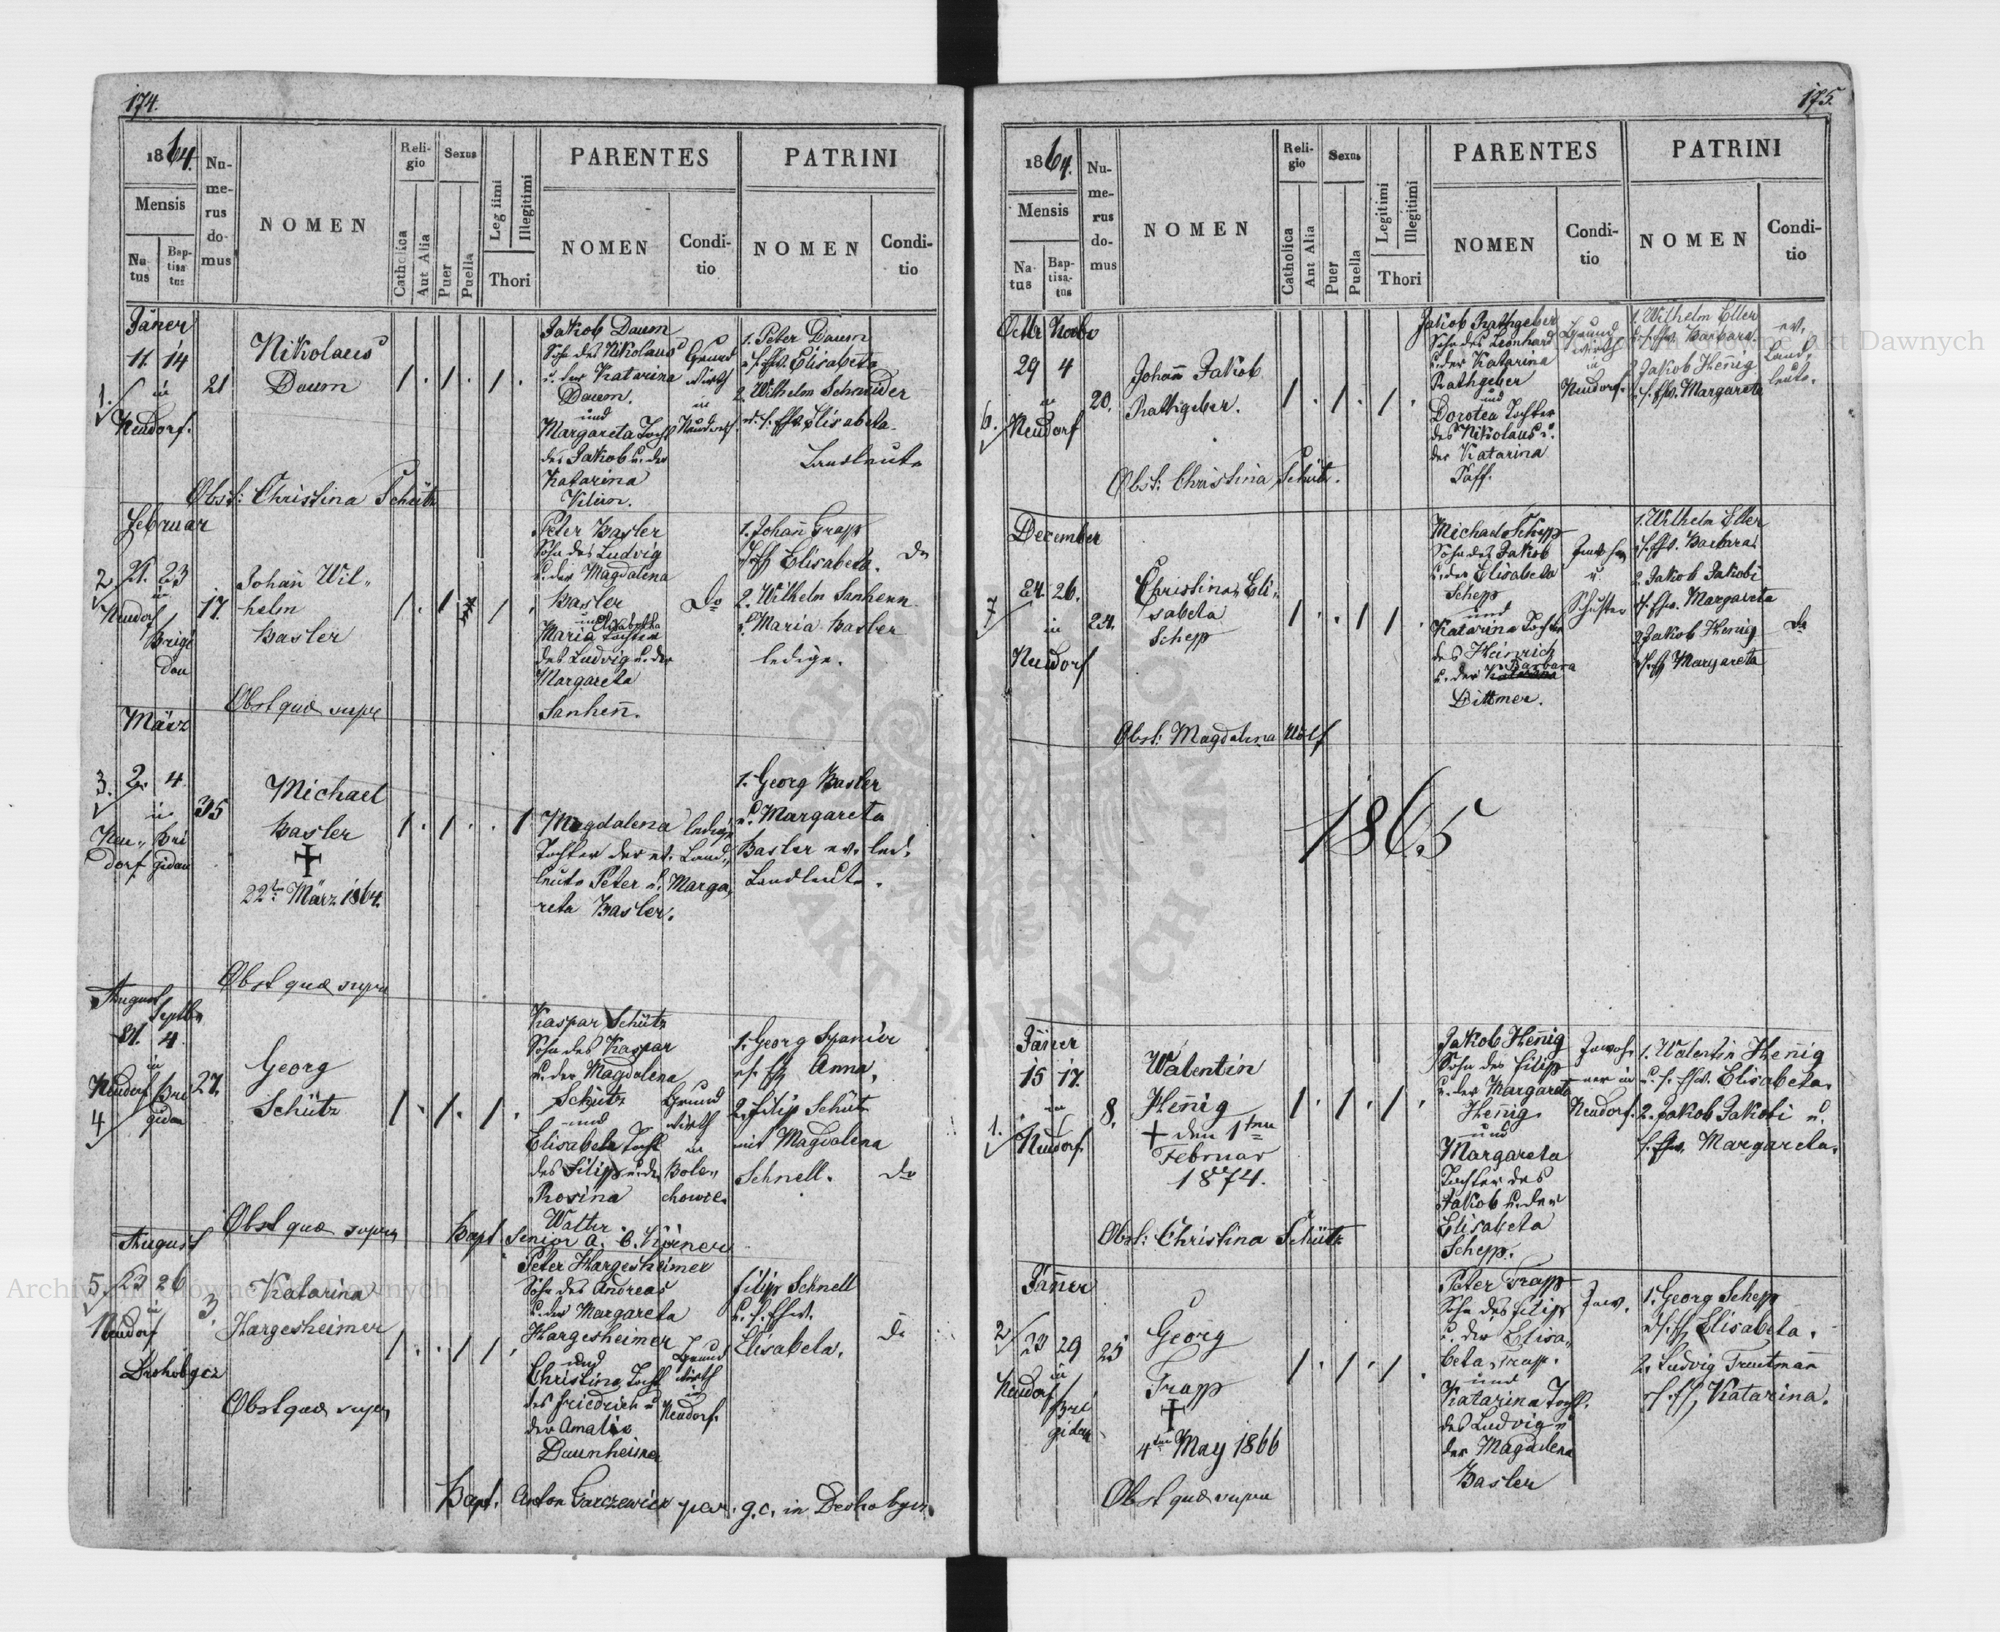 174.
1864.
Mensis
Na-
tus
Bap-
tisa-
tus
Nu-
me-
rus
do-
mus
NOMEN
Reli-
gio
Catholica
Aut Alia
Sexus
Puer
Puella
Leg iimi
Illegitimi
Thori
PARENTES
NOMEN
Condi-
tio
PATRINI
NOMEN
Condi-
tio
Jäner
11. 14
in
Neudorf.
1.
21
Nikolaus
Daum
Jakob Daum
Sohn des Nikolaus
u. der Katarina
Daum.
und
Margareta Tocht
des Jakob u. der
Katarina
Grund
wirth
in
Neudorf
1. Peter Daum
u. s. Ehw. Elisabeta
2. Wilhelm Schneider
u. s. Ehw. Elisabeta.
Landleute
Obst: Christina Schütz
Februar
2
21. 23
in
Neudorf
Brigi
dau
17.
Johan̄ Wil„
helm
Basler
Peter Basler
Sohn des Ludvig
u. der Magdalena
Basler
und Elisabetha
Maria Tochter
des Ludvig u. der
Margareta
Sanhen̄.
Do
1. Johan̄ Trapp
Elisabeta.
2. Wilhelm Sanhenn
u. Maria Basler
ledige.
Do
Obst quæ supr
März
3.
2. 4.
in
Neu„ Bri
dorf gidau
35
Michael
Basler
22ten März 1864.
Magdalena ledige
Tochter der ev. Land„
leute Peter u. Marga„
reta Basler.
1. Georg Basler
u. Margareta
Basler ev. led.
Landleute.
Obst quæ supra
August Septbr
31. 4.
in
Neudorf Bri
gidau
4
27.
Georg
Schütz
Kaspar Schütz
Sohn des Kaspar
u. der Magdalena
Schütz
und
Elisabeta Tocht
des Filipp u. der
Rosina
Walter.
Grund
wirth
in
Bole„
chowce.
1. Georg Spanier
Anna,
2. Filip Schütz
mit Magdalena
Schnell.
Do
Obst quæ supra
Bapt. Senior A. C. Körner
August
5.
23 26
in
Neudorf
Drohobycz
3.
Katarina
Hargesheimer
Peter Hargesheimer
Sohn des Andreas
u. der Margareta
Hargesheimer
und
Christina Tocht
des Friedrich u
der Amalia
Daunheimer
Grund
wirth
in
Neudorf.
Filip Schnell
u. s. Ehw.
Elisabeta.
Do
Obst quæ supra
Bapt. Anton Garczewicz par. g.c. in Drohobycz.
175.
1864.
Mensis
Na-
tus
Bap-
tisa-
tus
Nu-
me-
rus
do-
mus
NOMEN
Reli-
gio
Catholica
Aut Alia
Sexus
Puer
Puella
Legitimi
Illegitimi
Thori
PARENTES
NOMEN
Condi-
tio
PATRINI
NOMEN
Condi-
tio
Octbr Novbr
29 4
in
Neudorf
6.
20.
Johan̄ Jakob
Rathgeber.
Jakob Rathgeber
Sohn des Leonhard
u. der Katarina
Rathgeber
und
Dorotea Tochter
des Nikolaus u.
der Katarina
Grund
wirth
in
Neudorf.
1. Wilhelm Eller
u. s. Ehw. Barbara.
2 Jakob Hen̄ig
u. s. Ehw. Margareta
ev.
Land„
leute.
Obst: Christina Schütz.
December
7
24. 26.
in
Neudorf
24.
Christina, Eli„
sabeta
Schepp
Michael Schepp
Sohn des Jakob
u. der Elisabeta
Schepp
und
Katarina Tochter
des Heinrich
u. der Barbara
Dittmer.
Inwohner
u.
Schuster
1. Wilhelm Eller
u. s. Ehw. Barbara
2. Jakob Jakobi
u. s. Ehw. Margareta
3 Jakob Hen̄ig
Margareta
Do
Obst: Magdalena Wolf
1865
Jäner
15 17.
in
Neudorf.
1.
8.
Walentin
Hen̄ig
den 1ten
Februar
1874.
Jakob Hen̄ig
Sohn des Filip
u. der Margareta
Hen̄ig.
und
Margareta
Tochter des
Jakob u. der
Elisabeta
Schepp.
Inwoh„
ner in
Neudorf.
1. Walentin Hen̄ig
u. s. Ehw. Elisabeta.
2. Jakob Jakobi u.
s. Ehw. Margareta.
Obst: Christina Schütz
Jäner
2
23 29
in
Neudorf
Bri
gidau
25
Georg
Trapp
4ten May 1866
Peter Trapp
Sohn des Filip
u. der Elisa„
beta Trapp.
und
Katarina Tocht.
des Ludvig u
der Magdalena
Basler
Inw.
1. Georg Schepp
Elisabeta.
2. Ludvig Trautman̄
Katarina.
Obst quæ supra